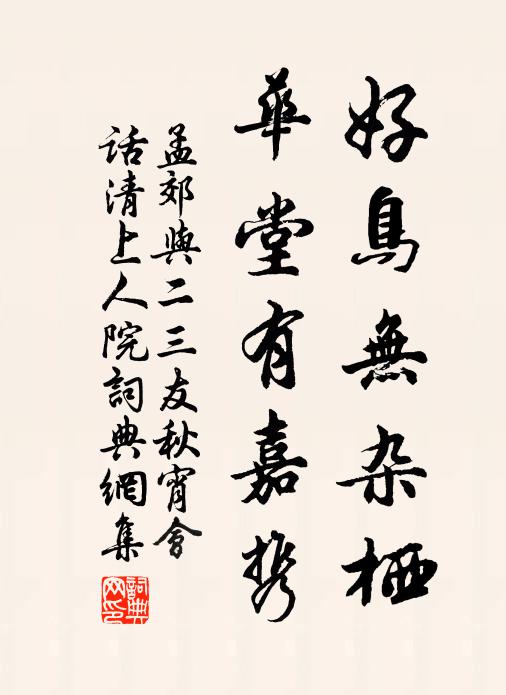 好鳥無杂栖
華堂有嘉携
孟郊與二三友秋宵會
话清上人院詞典網集
詞典網印